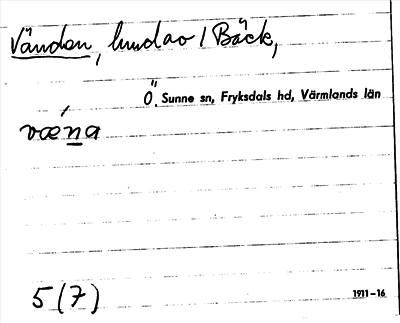 Vändan, lundar i Bäck,
Ö. Sunne sn, Fryksdals hd, Värmlands län
væna
5 (7)
1911-16